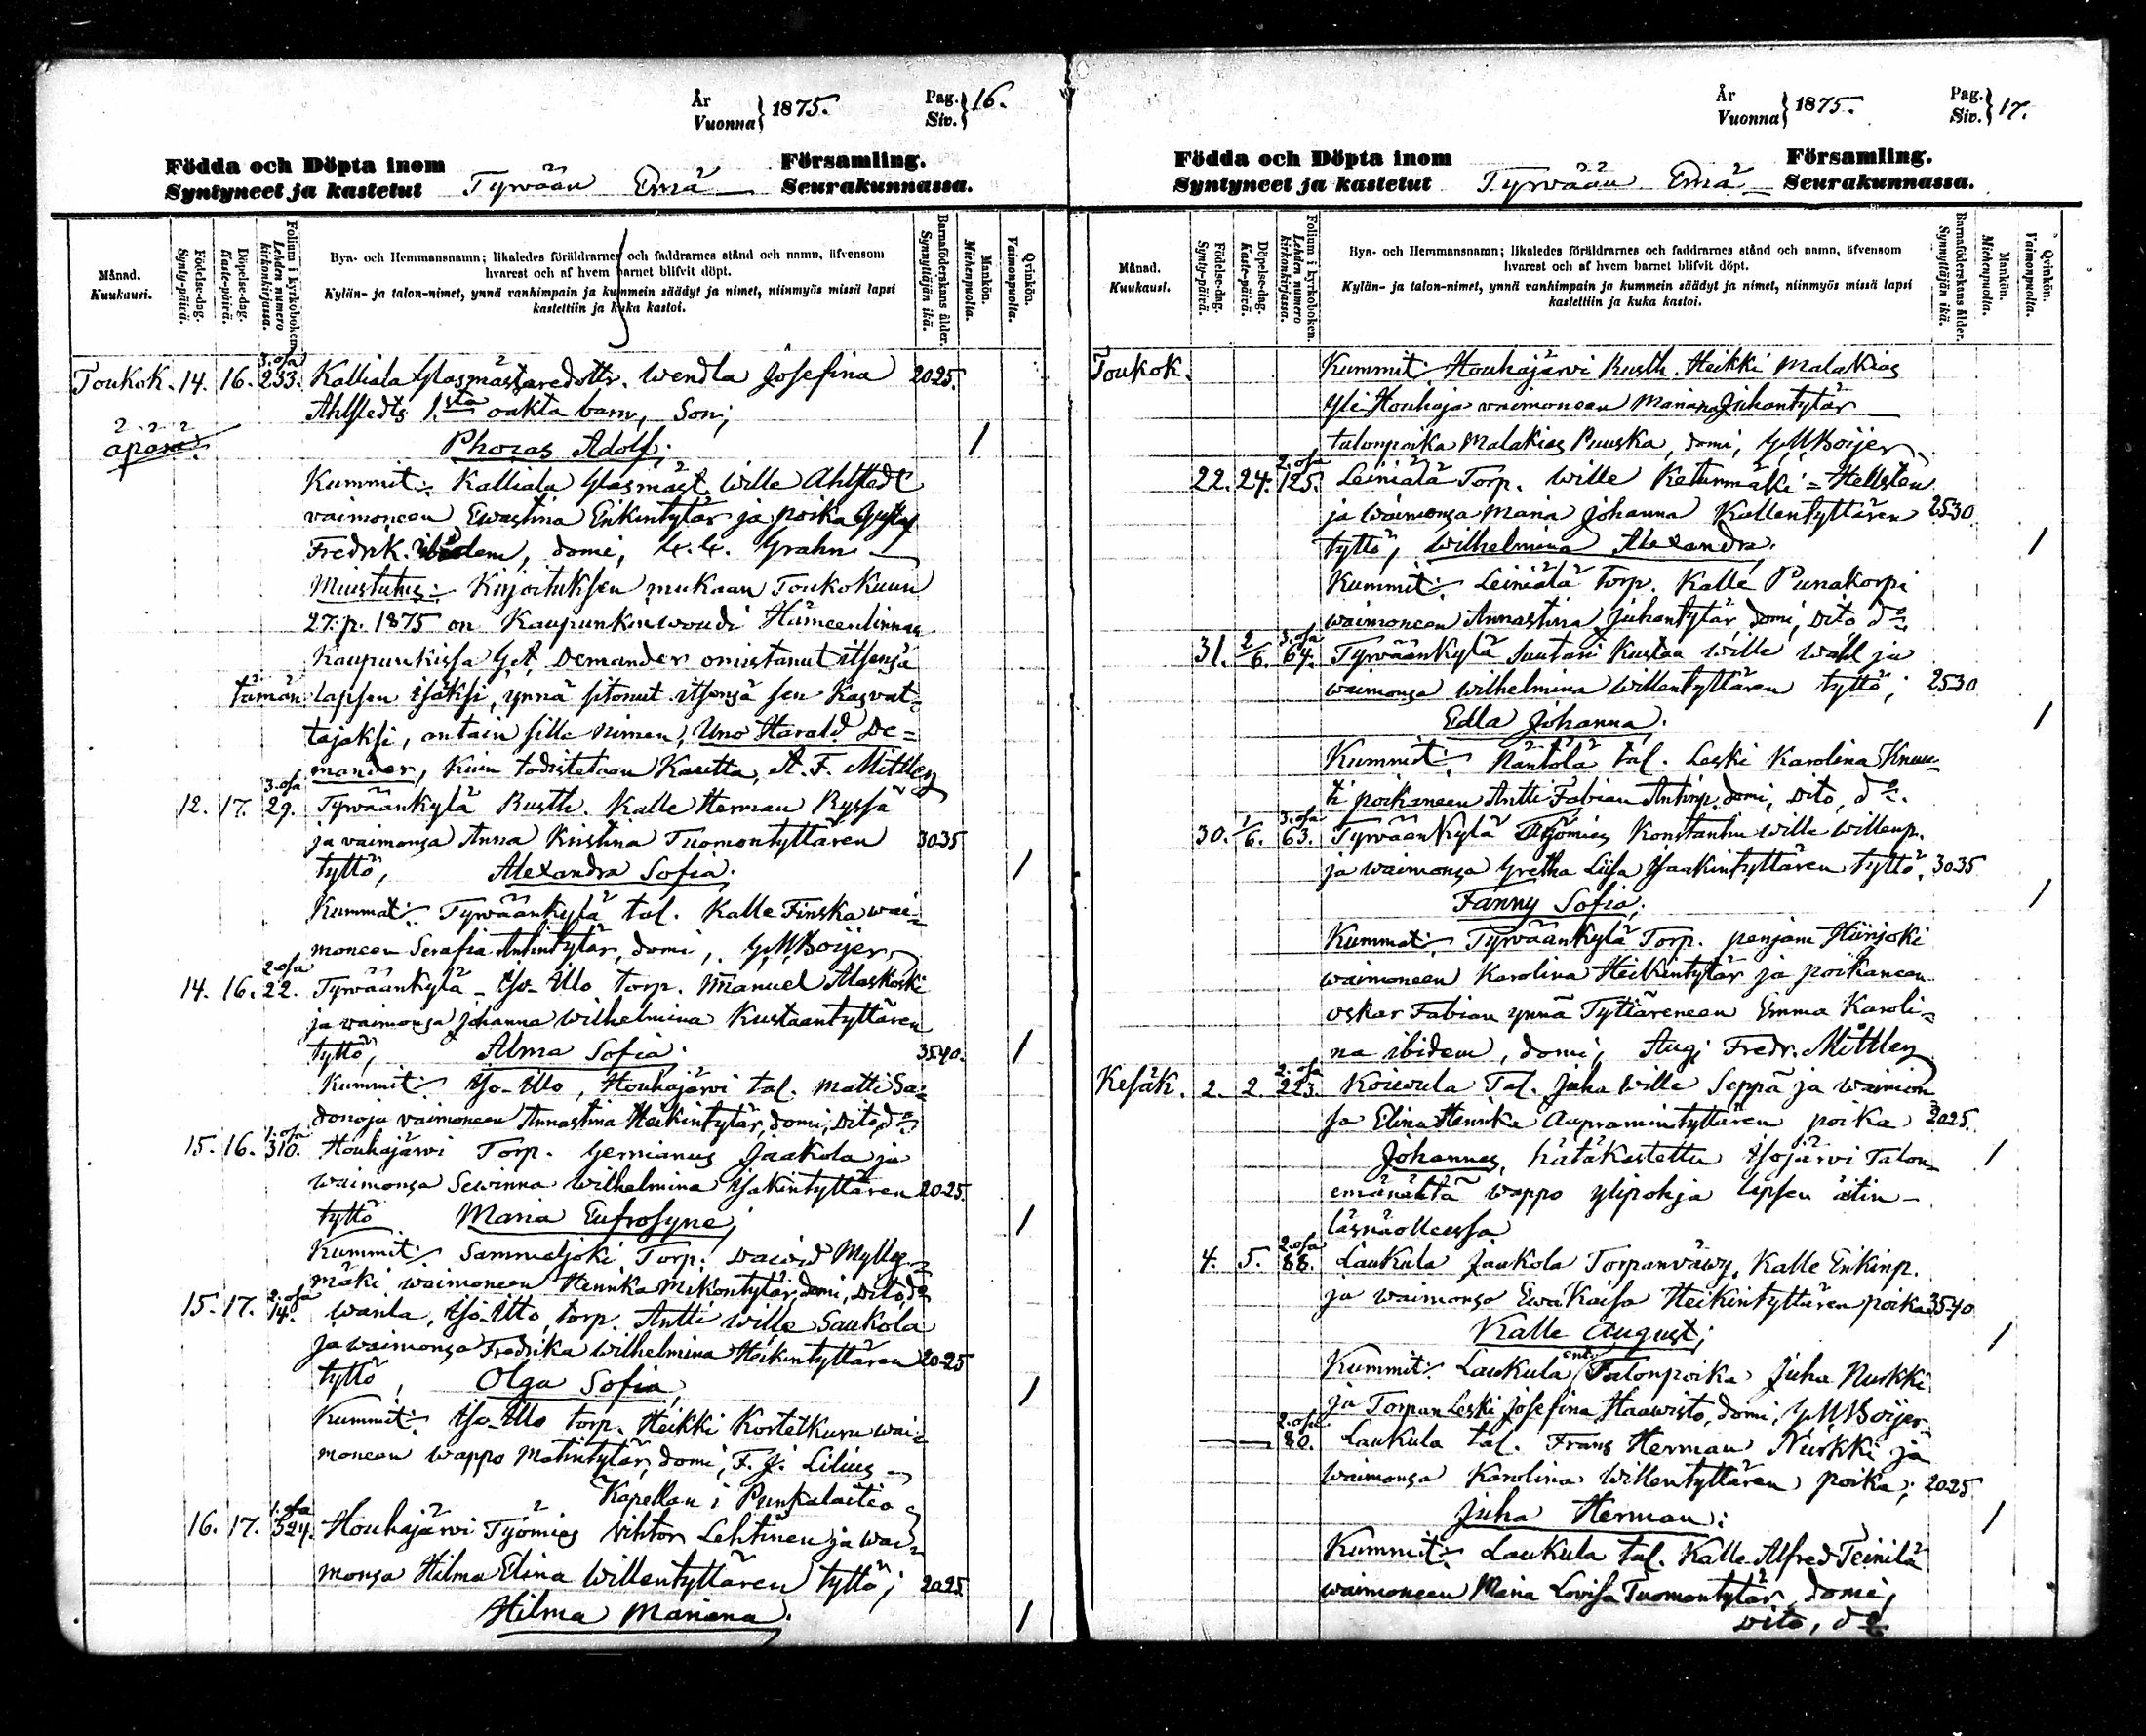 År
Vuonna } 1875.
Pag.
Siv. } 16.
Födda och Döpta inom
Syntyneet ja kastetut
Tyrvään Emä
Församling.
Seurakunnassa.
Månad.
Kuukausi.
Födelse-dag.
Synty-päivä.
Döpelse-dag.
Kaste-päivä.
Folium i kyrkoboken.
Lehden numero kirkonkirjassa.
Byn- och Hemmansnamn; likaledes föräldrarnes och faddrarnes stånd och namn, äfvensom
hvarest och af hvem barnet blifvit döpt.
Kylän- ja talon-nimet, ynnä vanhimpain ja kummein säädyt ja nimet, niinmyös missä lapsi
kastettiin ja kuka kastoi.
Barnaföderskans ålder.
Synnyttäjän ikä.
Mankön.
Miehenpuolta.
Qvinkön.
Vaimonpuolta.
Toukok. 14. 16. 3. osa 233. Kalliala Glasmästaredottr. Wendla Josefina 20 25.
Ahlstedts 1.sta oäkta barn, Son;
Phozas Adolf. /
Kummit: Kalliala Glasmäst. Wille Ahlstedt
vaimoneen Ewastina Erikintytär ja poika Gustaf
Fredrik ibidem, domi, Grahn
Muistutus: Kirjoituksen mukaan Toukokuun
27. p. 1875 on Kaupunkinwoudi Hämeenlinnan
Kaupunkissa G. A. Demander omistanut itsensä
tämän lapsen isäksi, ynnä sitonut itsensä sen Kasvat-
tajaksi, antain sille nimen, Uno Harald De=
mander, Kuin todistetaan Kautta, A. F. Mittler
12. 17. 3. osa 29. Tyrväänkylä Rusth. Kalle Herman Ryssä
ja vaimonsa Anna Kristina Tuomontyttären 30 35
tyttö, Alexandra Sofia; /
Kummit: Tyrväänkylä tal. Kalle Finska wai-
moneen Serafia Antintytär, domi, G M Boijer
14. 16. 2 osa 22. Tyrväänkylä - Iso-Ullo torp. Manuel Alaskoski
ja waimonsa Johanna Wilhelmina Kustaantyttären
tyttö, Alma Sofia. 35 40. /
Kummit: Iso-Ullo, Houhajärvi tal. Matti Sa-
donoja vaimoneen Annastina Heikintytär, domi, Dito, d:o
15. 16. 1. osa 310. Houhajärvi Torp. Germanus Jaakola ja
waimonsa Sewinna Wilhelmina Isakintyttären 20-25.
tyttö Maria Eufrosyne; /
Kummit: Sammaljoki Torp. Dawid Mylly-
mäki waimoneen Henrika Mikontytär, domi, Dito, d:o
15. 17. 2. osa 14. Wanta, Iso-Ullo, torp. Antti Wille Saukola
ja waimonsa Fredrika Wilhelmina Heikintyttären 20-25
tyttö, Olga Sofia, /
Kummit: Iso-Ullo torp. Heikki Kortetkuru wai-
moneen Wappo Matintytär, domi, F. J. Lilius
Kapellan i Punkalaitio
16. 17. 1. osa 324. Houhajärvi Työmies Vihtor Lehtinen ja wai-
monsa Hilma Elina Willentyttären tyttö; 20 25
Hilma Mariana. /
År
Vuonna } 1875.
Pag.
Siv. } 17.
Födda och Döpta inom
Syntyneet ja kastetut
Tyrvään Emä
Församling.
Seurakunnassa.
Månad.
Kuukausi.
Födelse-dag.
Synty-päivä.
Döpelse-dag.
Kaste-päivä.
Folium i kyrkoboken.
Lehden numero kirkonkirjassa.
Byn- och Hemmansnamn; likaledes föräldrarnes och faddrarnes stånd och namn, äfvensom
hvarest och af hvem barnet blifvit döpt.
Kylän- ja talon-nimet, ynnä vanhimpain ja kummein säädyt ja nimet, niinmyös missä lapsi
kastettiin ja kuka kastoi.
Barnaföderskans ålder.
Synnyttäjän ikä.
Mankön.
Miehenpuolta.
Qvinkön.
Vaimonpuolta.
Toukok. Kummit: Houhajärvi Rusth. Heikki Malakias
Yli Houhoja vaimoneen Mariana Juhantytär
talonpoika Malakias Puuska, domi, G M Boijer
22. 24. 2. osa 125. Leiniälä Torp. Wille Ketunmäki = Hellstén
ja Waimonsa Maria Johanna Kallentyttären 25 30
tyttö, Wilhelmina Alexandra. /
Kummit: Leiniälä Torp. Kalle Punakorpi
waimoneen Annastina Juhantytär, domi, Dito d:o
31. 2/6. 3. osa 64. Tyrväänkylä Suutari Kustaa Wille Wahl ja
waimonsa Wilhelmina Willentyttären tyttö; 25 30
Edla Johanna. /
Kummit: Näntölä tal. Leski Karolina Knuu-
ti poikaneen Antti Fabian Antinp. domi, Dito, d:o.
30. 1/6. 3. osa 63. Tyrväänkylä Työmies Konstantin Wille Willenp.
ja waimonsa Gretha Liisa Isaakintyttären tyttö, 30 35
Fanny Sofia; /
Kummit: Tyrväänkylä Torp. penjam Hiirijoki
waimoneen Karolina Heikintytär ja poikaneen
Oskar Fabian ynnä Tyttäreneen Emma Karoli-
na ibidem, domi, Aug. Fredr. Mittler
Kesäk. 2. 2. 2. osa 223. Koiwula Tal. Juha Wille Seppä ja waimon
sa Elina Henrika Aapramintyttären poika 20 25.
Johannes, hätäkastettu Isojärvi Talon-
emänältä Wappo Ylipohja lapsen äitin-
läsnäollessa /
4. 5. 2. osa 88. Laukula Jaakola Torpanväwy, Kalle Erikinp.
ja waimonsa Ewa Kaisa Heikintyttären poika 35-40
Kalle August; /
Kummit: Laukula ent. Talonpoika Juha Nurkki
ja Torpan Leski Josefina Haawisto, domi, G M Boijer
— — 2. osa 80. Laukula tal. Frans Herman Nurkki ja
Waimonsa Karolina Willentyttären poika; 20 25
Juha Herman; /
Kummit: Laukula tal. Kalle Alfred Teinilä
waimoneen Maria Lovisa Tuomontytär, domi,
Dito, d:o